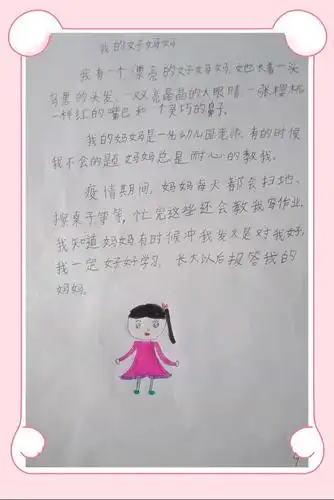 我的好妈妈
我有一个漂亮的好妈妈,她长着一头
乌黑的头发,一双亮晶晶的大眼睛,一张樱桃
一样红的嘴巴和一个灵巧的鼻子。
我的妈妈是一名幼儿园老师,有的时候
我不会的题妈妈总是耐心的教我。
疫情期间,妈妈每天都会扫地、
擦桌子等等,忙完这些还会教我写作业,
我知道妈妈有时候冲我发火是对我好,
我一定好好学习,长大以后报答我的
妈妈。